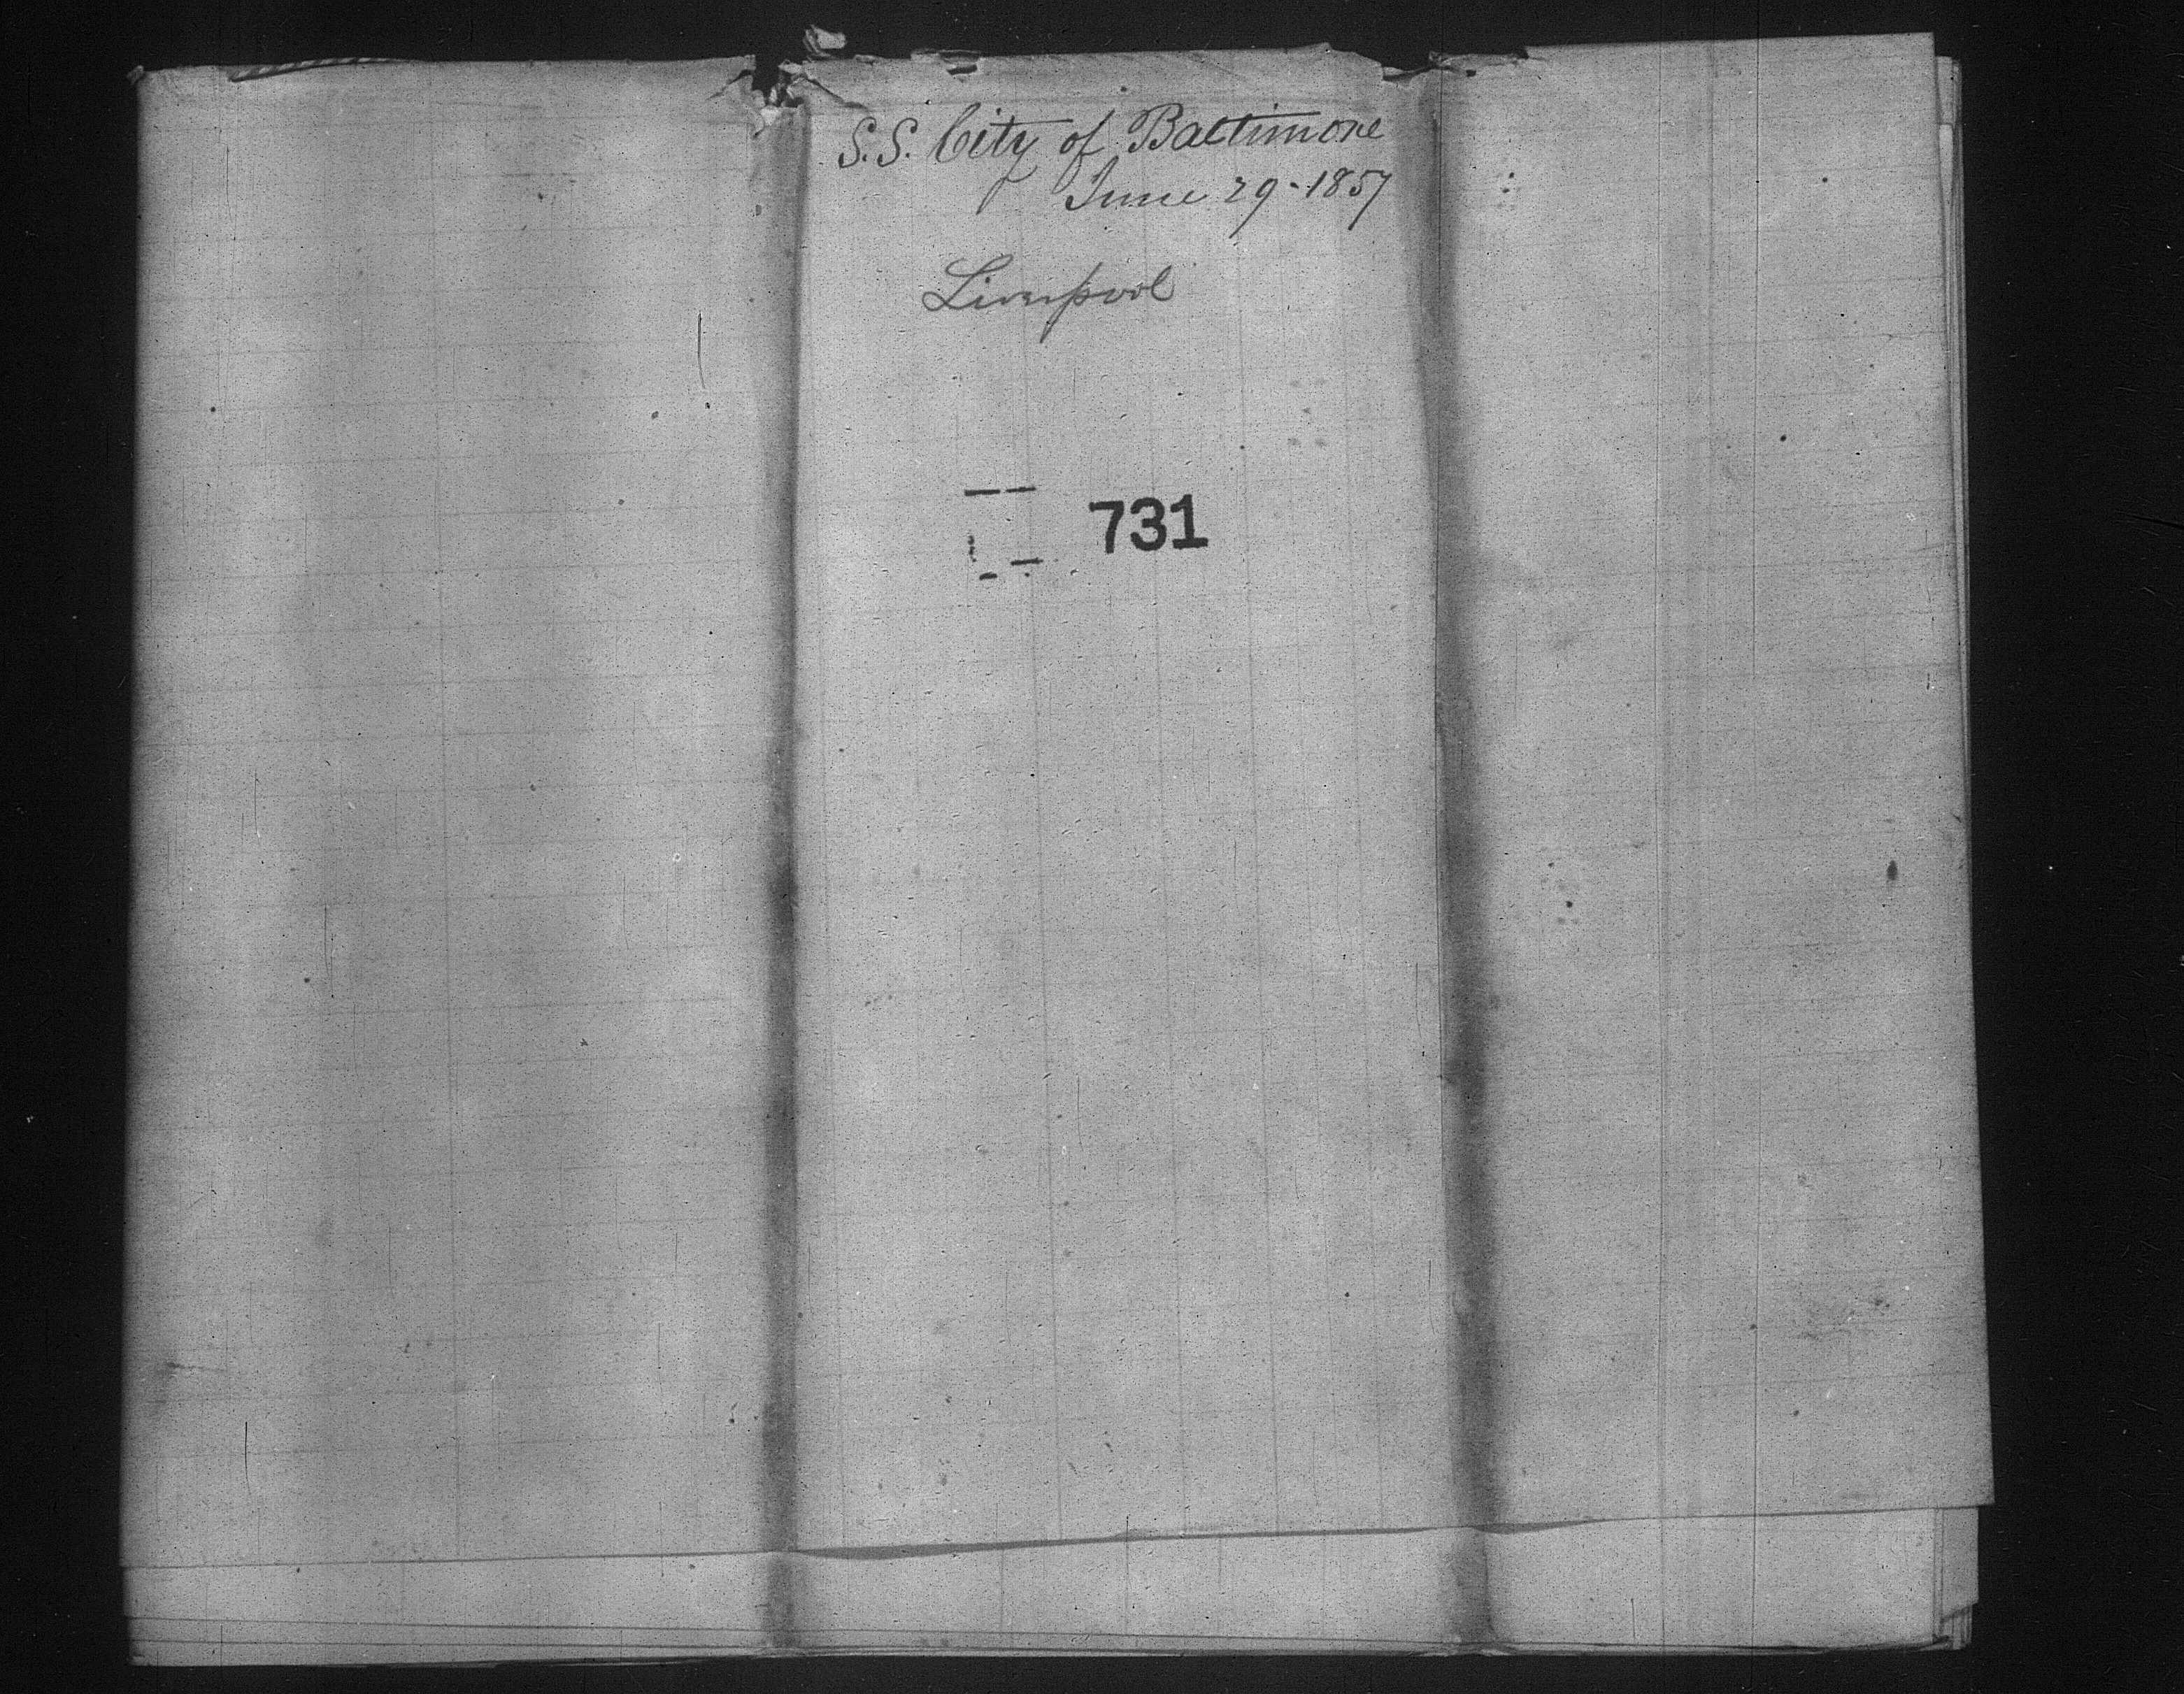 S.S. City of Baltimore
June 29-1857
Liverpool
731